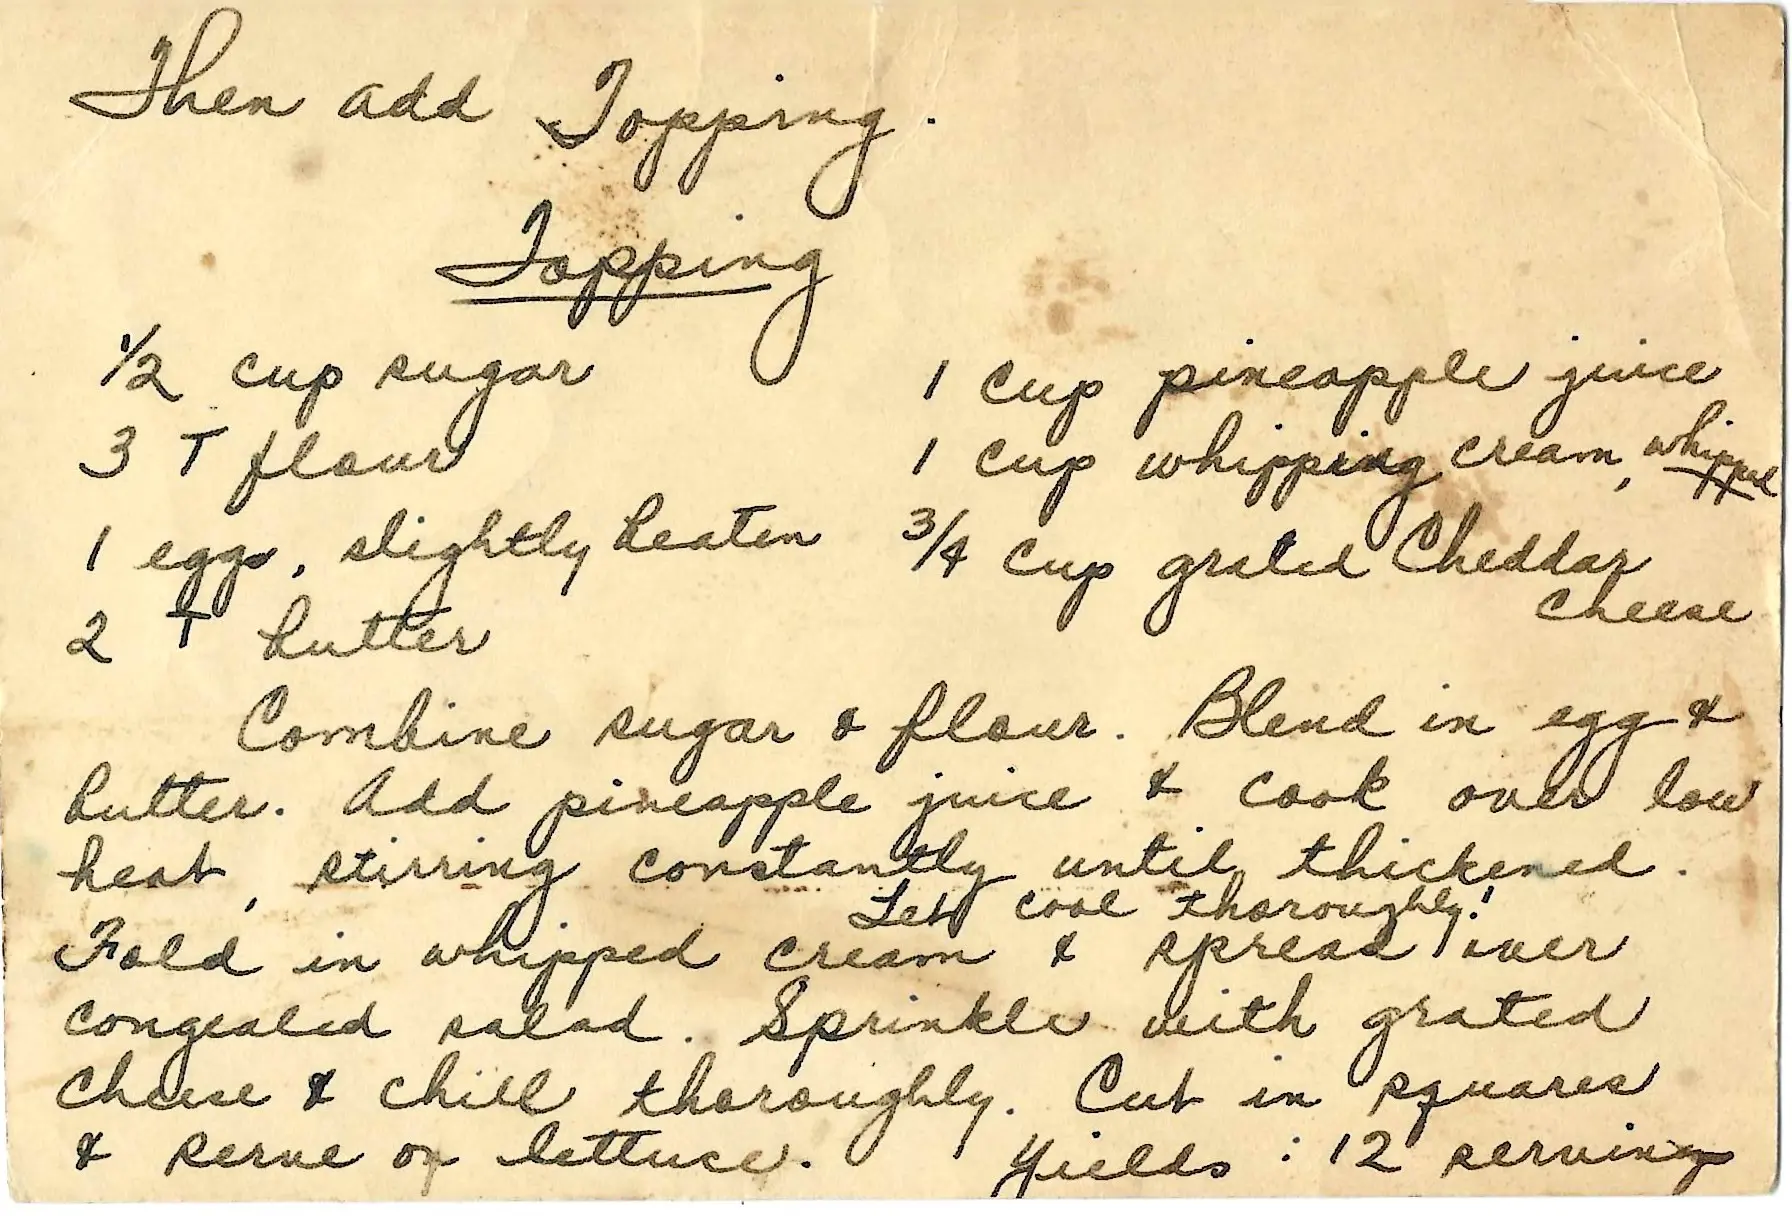 Then add Topping.
Topping
1/2 cup sugar
3 T flour
1 egg, slightly beaten
2 T butter
1 cup pineapple juice
1 cup whipping cream, whipped
3/4 cup grated Cheddar
cheese
Combine sugar & flour. Blend in egg &
butter. Add pineapple juice & cook over low
heat, stirring constantly until thickened.
Let cool thoroughly!
Fold in whipped cream & spread over
congealed salad. Sprinkle with grated
cheese & chill thoroughly. Cut in squares
& serve on lettuce. Yields: 12 servings